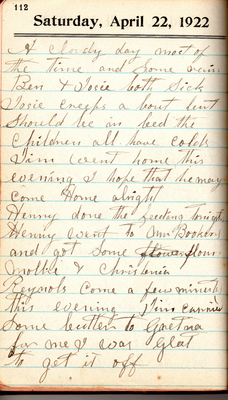 112
Saturday, April 22, 1922
A cloudy day most of
the time and some rain
Ben & Josie both sick
Josie creeps a bout but
should be in bed the
children all have colds
Jim went home this
evening I hope that he may
come Home alright
Henny done the feeding tonight
Henny went to Booker
and got some flour
Mollie & Christenia
Reynols come a few minuets
this evening Jim carried
some butter to
for me I was glat
to get it off